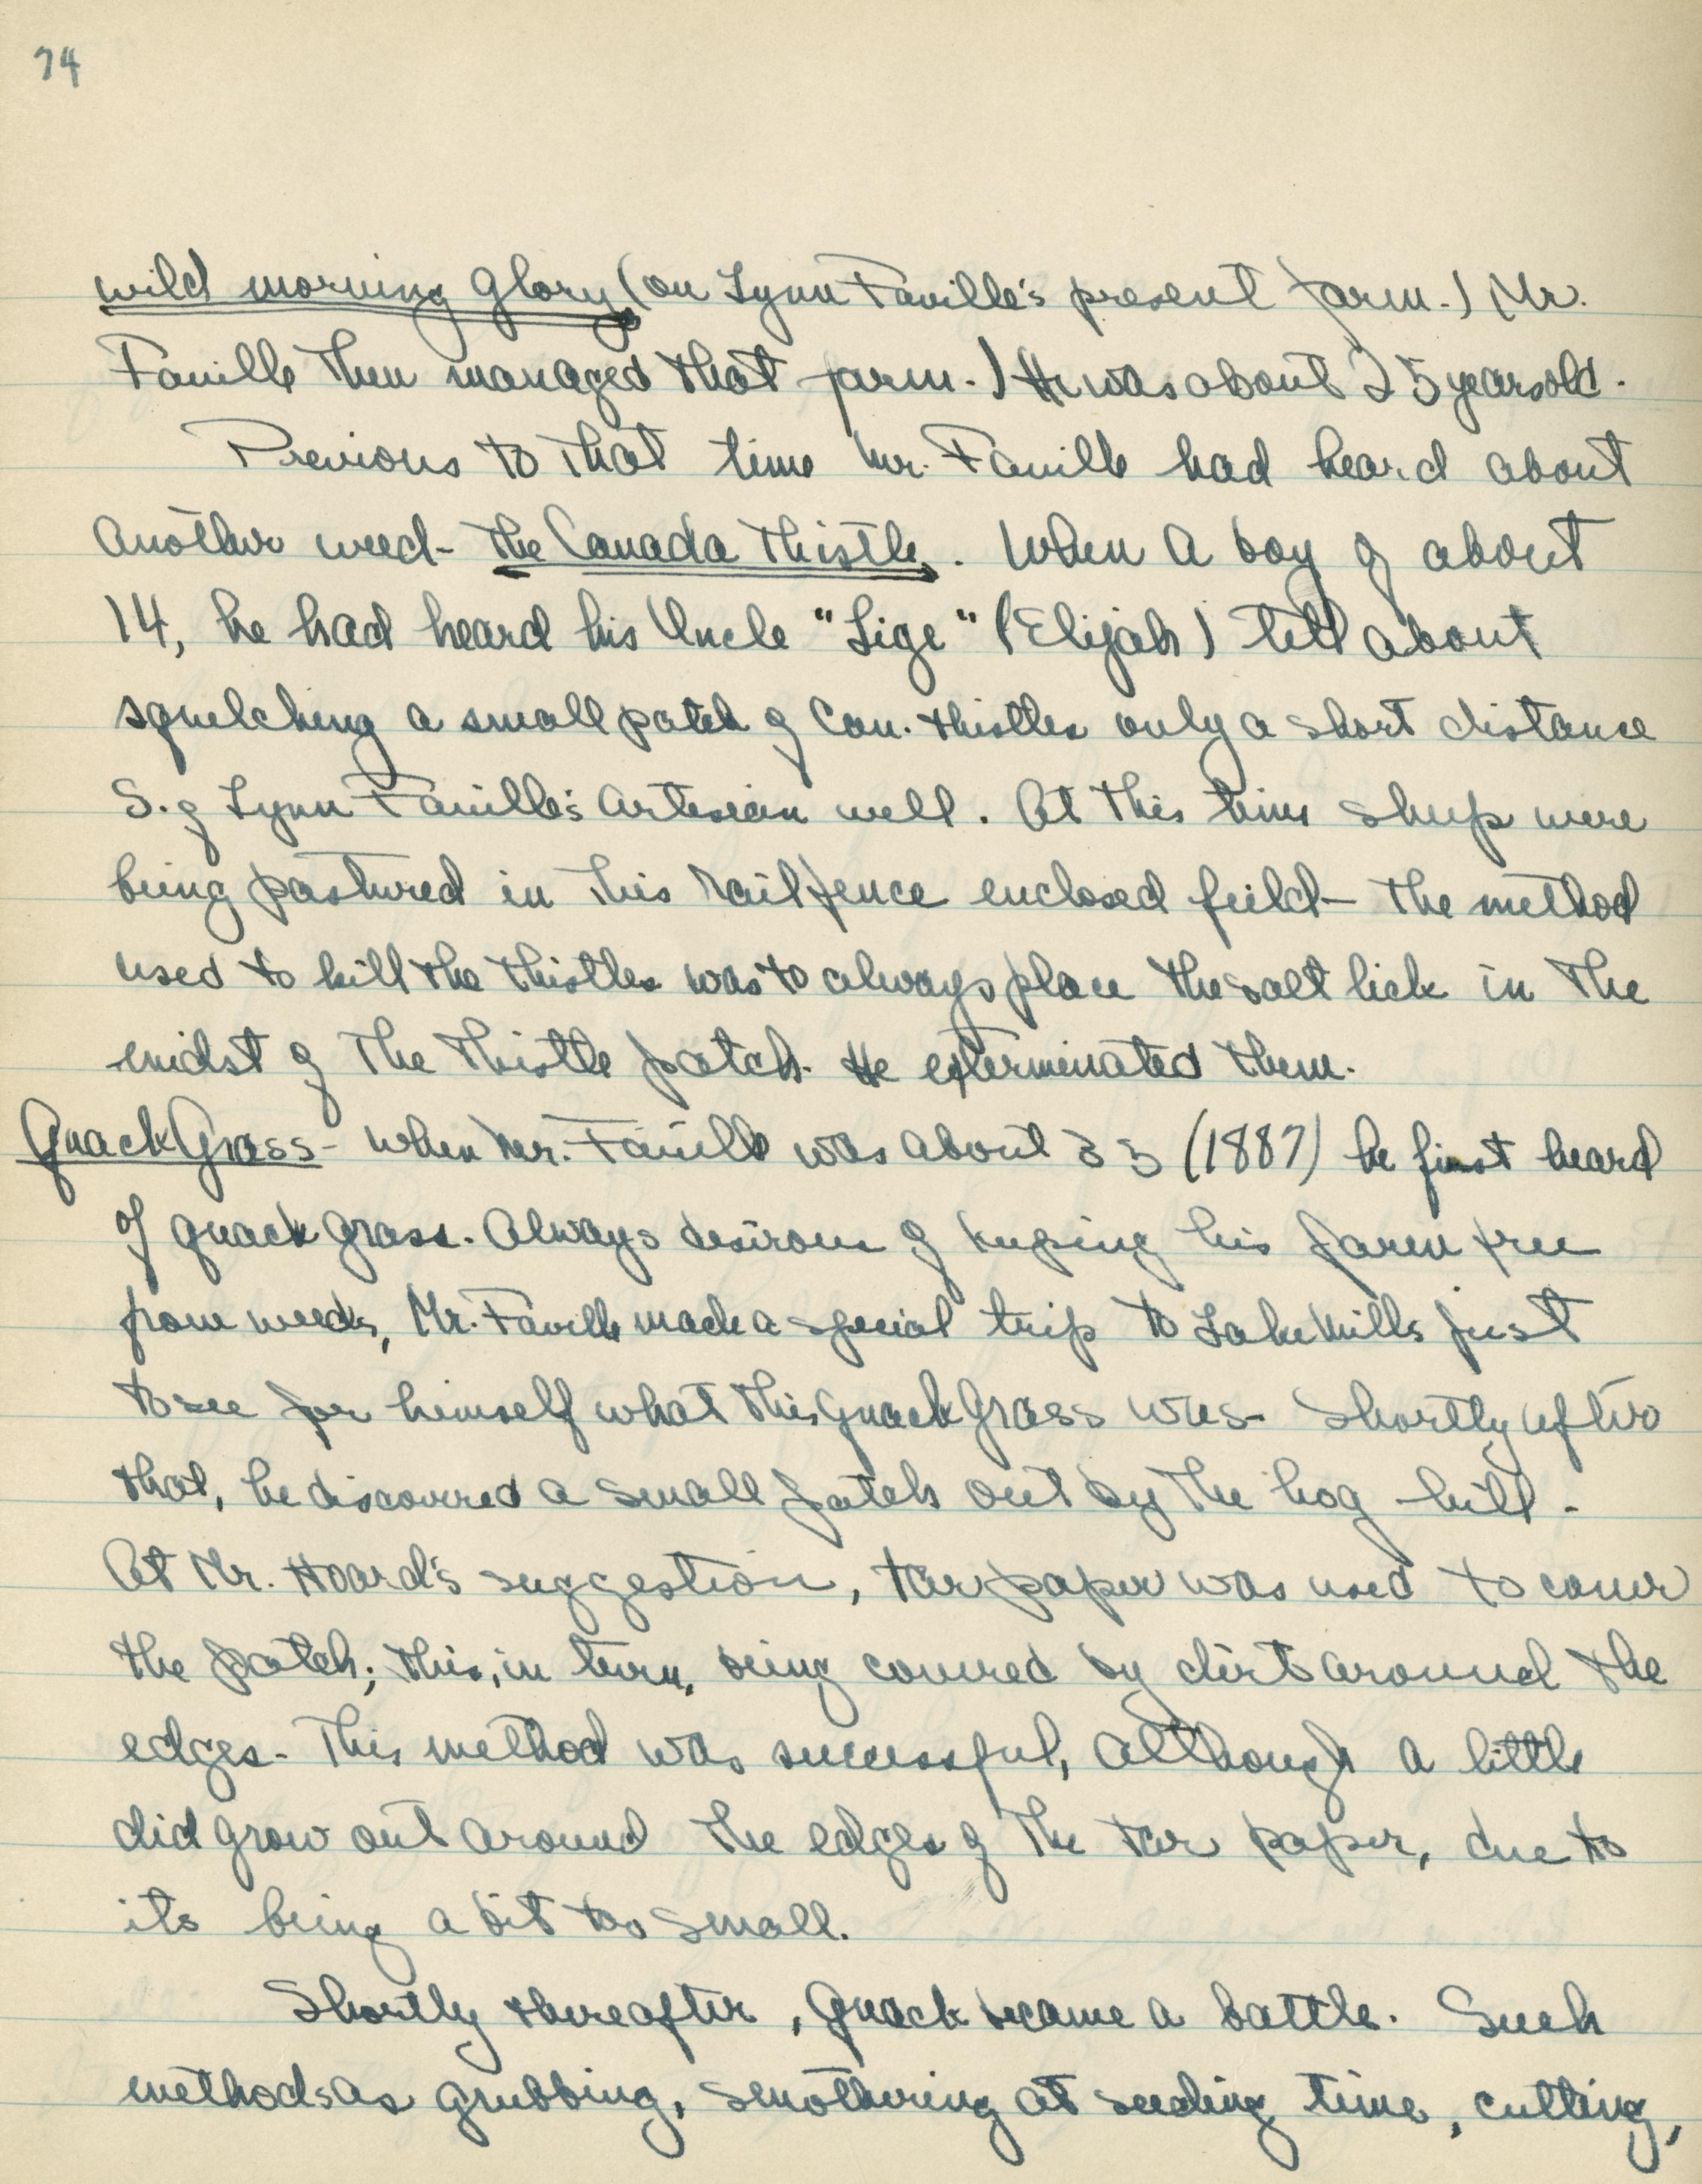 74
wild morning glory (on Lynn Faville's present farm.) (Mr.
Faville then managed that farm.) He was about 25 years old.
Previous to that time Mr. Faville had heard about
another weed- the Canada Thistle. When a boy of about
14, he had heard his Uncle "Lige" (Elijah) tell about
squelching a small patch of Can. thistles only a short distance
S. of Lynn Faville's Artesian well. At this time sheep were
being pastured in this rail fence enclosed field- the method
used to kill the thistles was to always place the salt lick in the
midst of the thistle patch. He exterminated them.
Quack Grass- When Mr. Faville was about 33 (1887) he first heard
of quack grass. Always desirous of keeping his farm free
from weeds, Mr. Faville made a special trip to Lake Mills just
to see for himself what this Quack Grass was- Shortly after
that, he discovered a small patch out by the hog hill.
At Mr. Hoard's suggestion, tar paper was used to cover
the patch; this, in turn, being covered by dirt around the
edges- This method was successful, although a little
did grow out around the edges of the tar paper, due to
its being a bit too small.
Shortly thereafter, Quack became a battle. Such
methods as grubbing, smothering at seeding time, cutting,